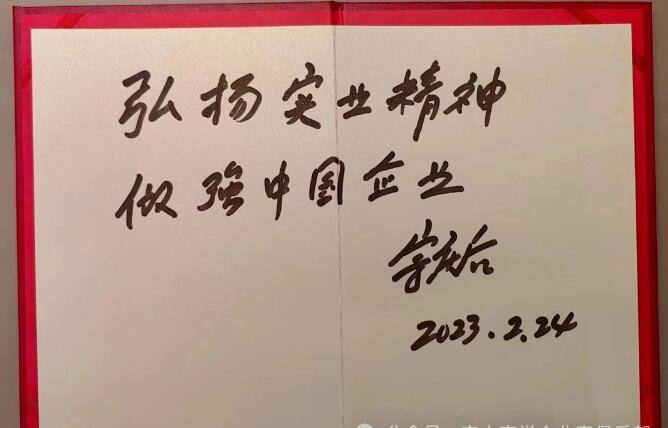 弘扬实业精神
做强中国企业
宗庆后
2023.2.24